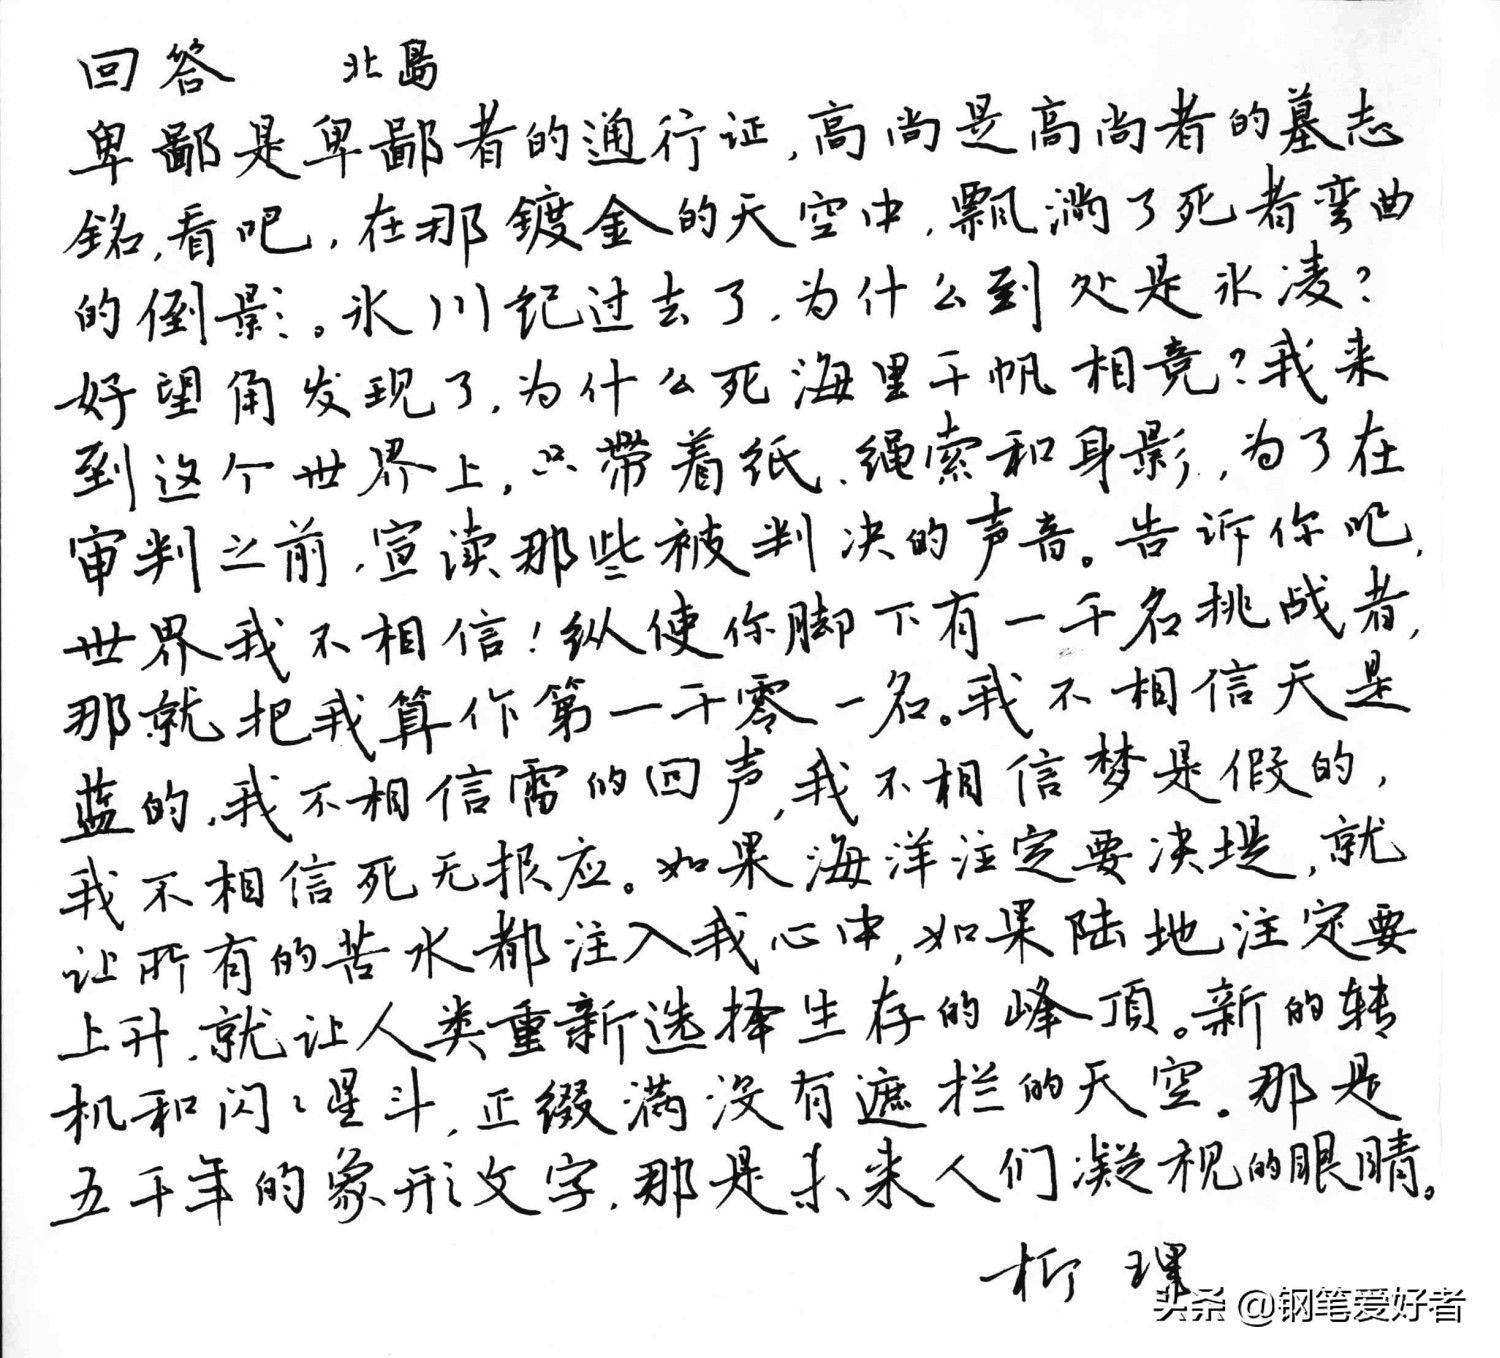 回答 北島
卑鄙是卑鄙者的通行证,高尚是高尚者的墓志
铭,看吧,在那镀金的天空中,飘淌了死者弯曲
的倒影。氷川纪过去了,为什么到处是氷凌?
好望角发现了,为什么死海里千帆相竞?我来
到这个世界上,只带着纸、绳索和身影,为了在
审判之前,宣读那些被判决的声音。告诉你吧,
世界我不相信!纵使你脚下有一千名挑战者,
那就把我算作第一千零一名。我不相信天是
蓝的,我不相信雷的回声,我不相信梦是假的,
我不相信死无报应。如果海洋注定要决堤,就
让所有的苦水都注入我心中,如果陆地注定要
上升,就让人类重新选择生存的峰頂。新的转
机和闪々星斗,正缀满没有遮拦的天空。那是
五千年的象形文字,那是未来人们凝视的眼睛。
柳
头条 @钢笔爱好者